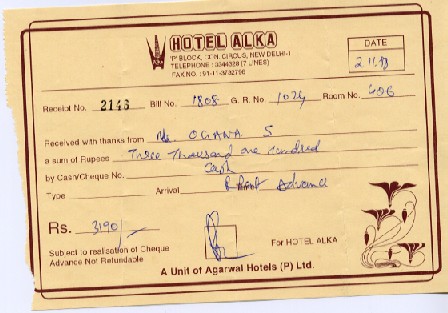 HOTEL ALKA
'P' BLOCK, CIRCUS, NEW DELHI-1
TELEPHONE : 3344328 (7 LINES)
FAX NO. : 91-11-3732796
DATE
Receipt No. 2146 Bill No. 1808 G. R. No. 1024 Room No. 606
Received with thanks from Ms. OGAWA S
a sum of Rupees Three Thousand one hundred
by Cash/Cheque No. Cash
Type Arrival Advance
Rs. 3190/-
Subject to realisation of Cheque
Advance Not Refundable
For HOTEL ALKA
A Unit of Agarwal Hotels (P) Ltd.